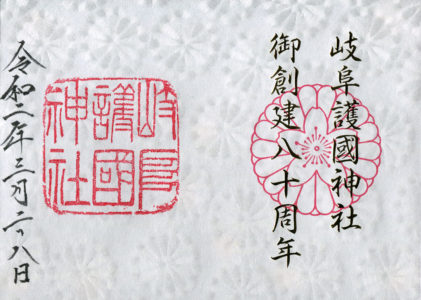 岐阜護國神社
御創建八十周年
岐阜
護國
神社
令和二年三月二十八日